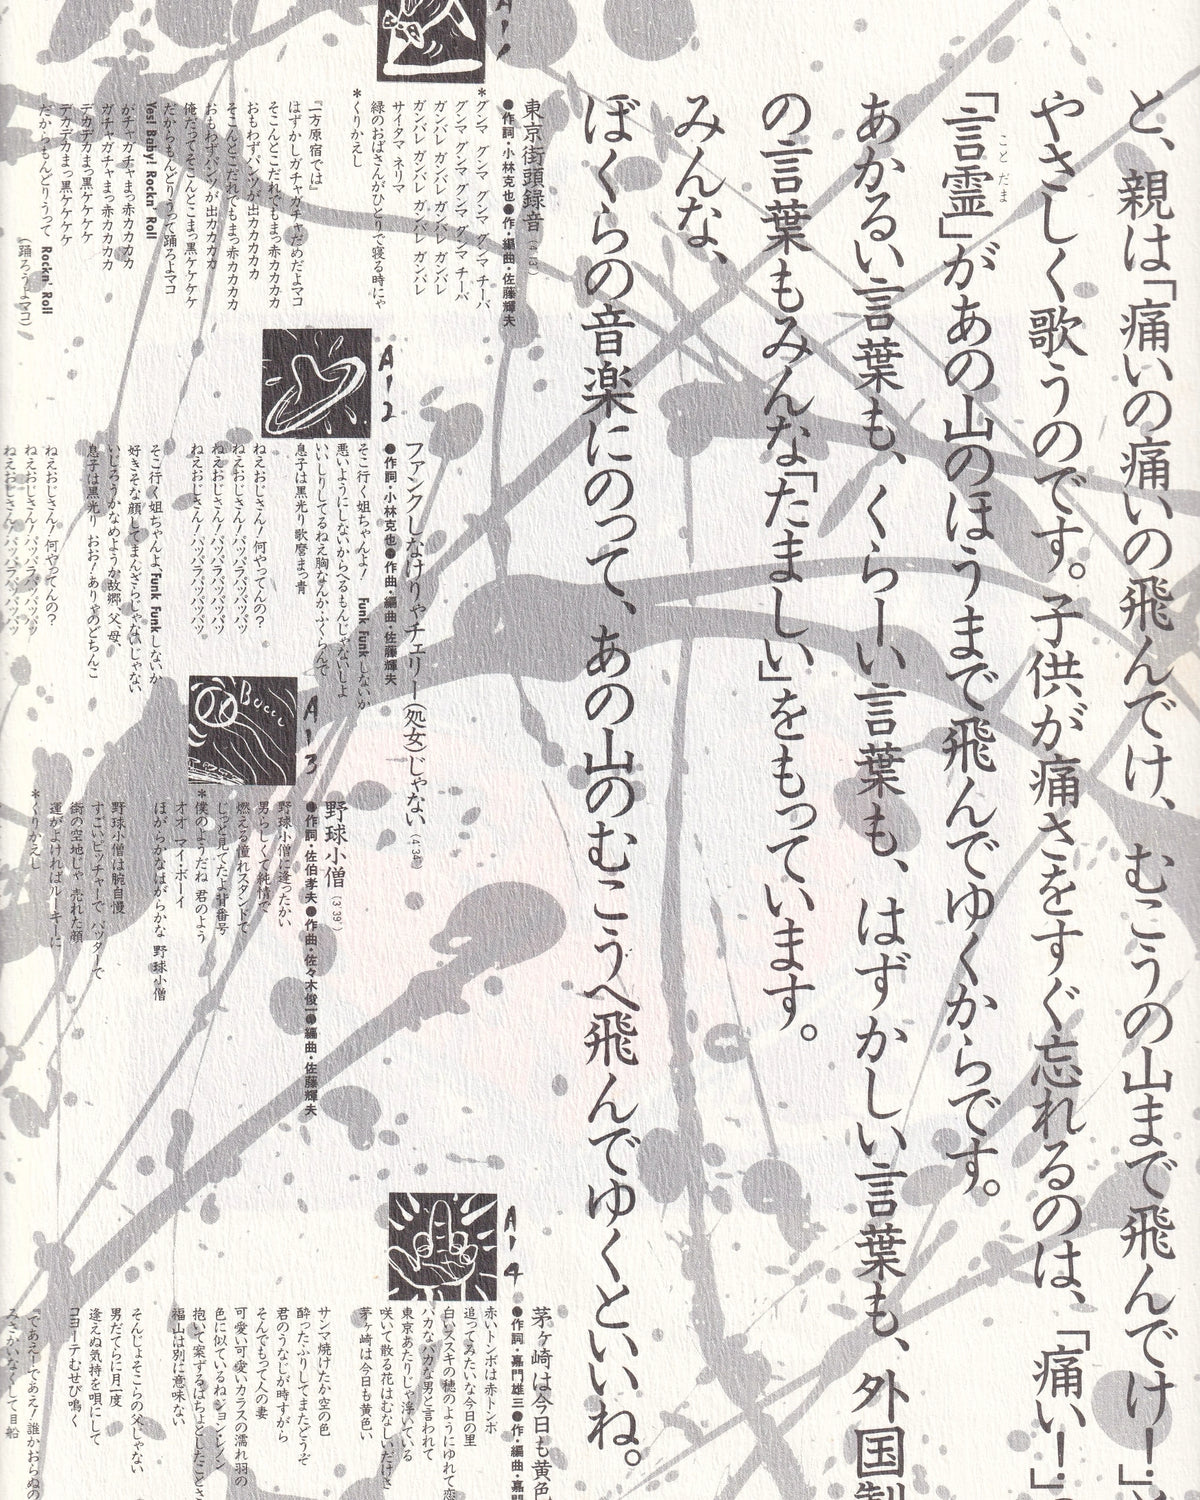 と、親は「痛いの痛いの飛んでけ、むこうの山まで飛んでけ!」
やさしく歌うのです。子供が痛さをすぐ忘れるのは、「痛い!」
「言霊」があの山のほうまで飛んでゆくからです。
ことだま
あかるい言葉も、くらーい言葉も、はずかしい言葉も、外国製
の言葉もみんな「たましい」をもっています。
みんな、
ぼくらの音楽にのって、あの山のむこうへ飛んでゆくといいね。
A-1
東京街頭録音
●作詞・小林克也●作・編曲・佐藤輝夫
*グンマ グンマ グンマ グンマ チーバ
グンマ グンマ グンマ グンマ チーバ
ガンバレ ガンバレ ガンバレ ガンバレ
ガンバレ ガンバレ ガンバレ ガンバレ
サイタマ ネリマ
緑のおばさんがひとりで寝る時にゃ
*くりかえし
『一方原宿では』
はずかしガチャガチャだめだよマコ
そこんとこだれでもまっ赤カカカカ
おもわずパンツが出カカカカカ
そこんとこだれでもまっ赤カカカカ
おもわずパンツが出カカカカカ
俺だってそこんとこまっ黒ケケケケ
だからもんどりうって踊ろよマコ
Yes! Baby! Rockn' Roll
がチャガチャまっ赤カカカカ
ガチャガチャまっ赤カカカカカ
デカデカまっ黒ケケケケ
デカデカまっ黒ケケケケ
だからもんどりうって Rockn' Roll
(踊ろうよマコ)
A-2
ファンクしなけりゃチェリー(処女)じゃない (4'34")
●作詞・小林克也●作曲・編曲・佐藤輝夫
そこ行く姐ちゃんよ! Funk Funkしないか
悪いようにしないからへるもんじゃないしよ
いいしりしてるねえ胸なんかふくらんで
息子は黒光り歌麿まっ青
ねえおじさん!何やってんの?
ねえおじさん!パッパラパッパッパッ
ねえおじさん!パッパラパッパッパッ
ねえおじさん!パッパラパッパッパッ
そこ行く姐ちゃんよ、Funk Funkしないか
好きそな顔してまんざらじゃないじゃない
いじろうかなめようか故郷、父、母、
息子は黒光り おお!ありゃのどちんこ
ねえおじさん!何やってんの?
ねえおじさん!パッパラパッパッパッ
ねえおじさん!パッパラパッパッパッ
Bucci
A-3
野球小僧 (3'39")
●作詞・佐伯孝夫●作曲・佐々木俊一●編曲・佐藤輝夫
野球小僧に逢ったかい
男らしくて純情で
燃える憧れスタンドで
じっと見てたよ背番号
*僕のようだね 君のよう
オオ マイ・ボーイ
ほがらかなほがらかな 野球小僧
野球小僧は腕自慢
すごいピッチャーで バッターで
街の空地じゃ 売れた顔
運がよければルーキーに
*くりかえし
A-4
茅ヶ崎は今日も黄色
●作詞・嘉門雄三●作・編曲・嘉門
赤いトンボは赤トンボ
追ってみたいな今日の里
白いススキの穂のようにゆれて恋
バカなバカな男と言われて
東京あたりじゃ浮いている
咲いて散る花はむなしいだけさ
茅ヶ崎は今日も黄色い
サンマ焼けたか空の色
酔ったふりしてまたどうぞ
君のうなじが時すがら
そんでもって人の妻
可愛い可愛いカラスの濡れ羽の
色に似ているねジョン・レノン
抱いて案ずるはちょとしたことさ
福山は別に意味ない
そんじょそこらの父じゃない
男だてらに月一度
逢えぬ気持を唄にして
コヨーテむせび鳴く
『であえ!であえ!誰かおらぬの
みさかいなくして目